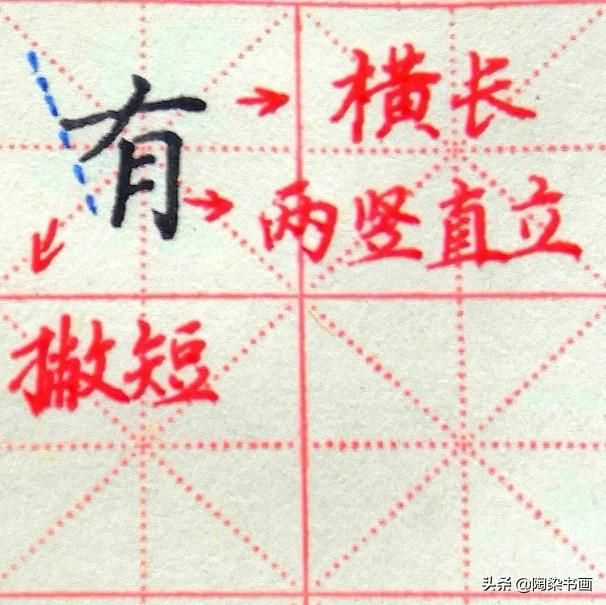 有
横长
两竖直立
撇短
头条 @陶染书画